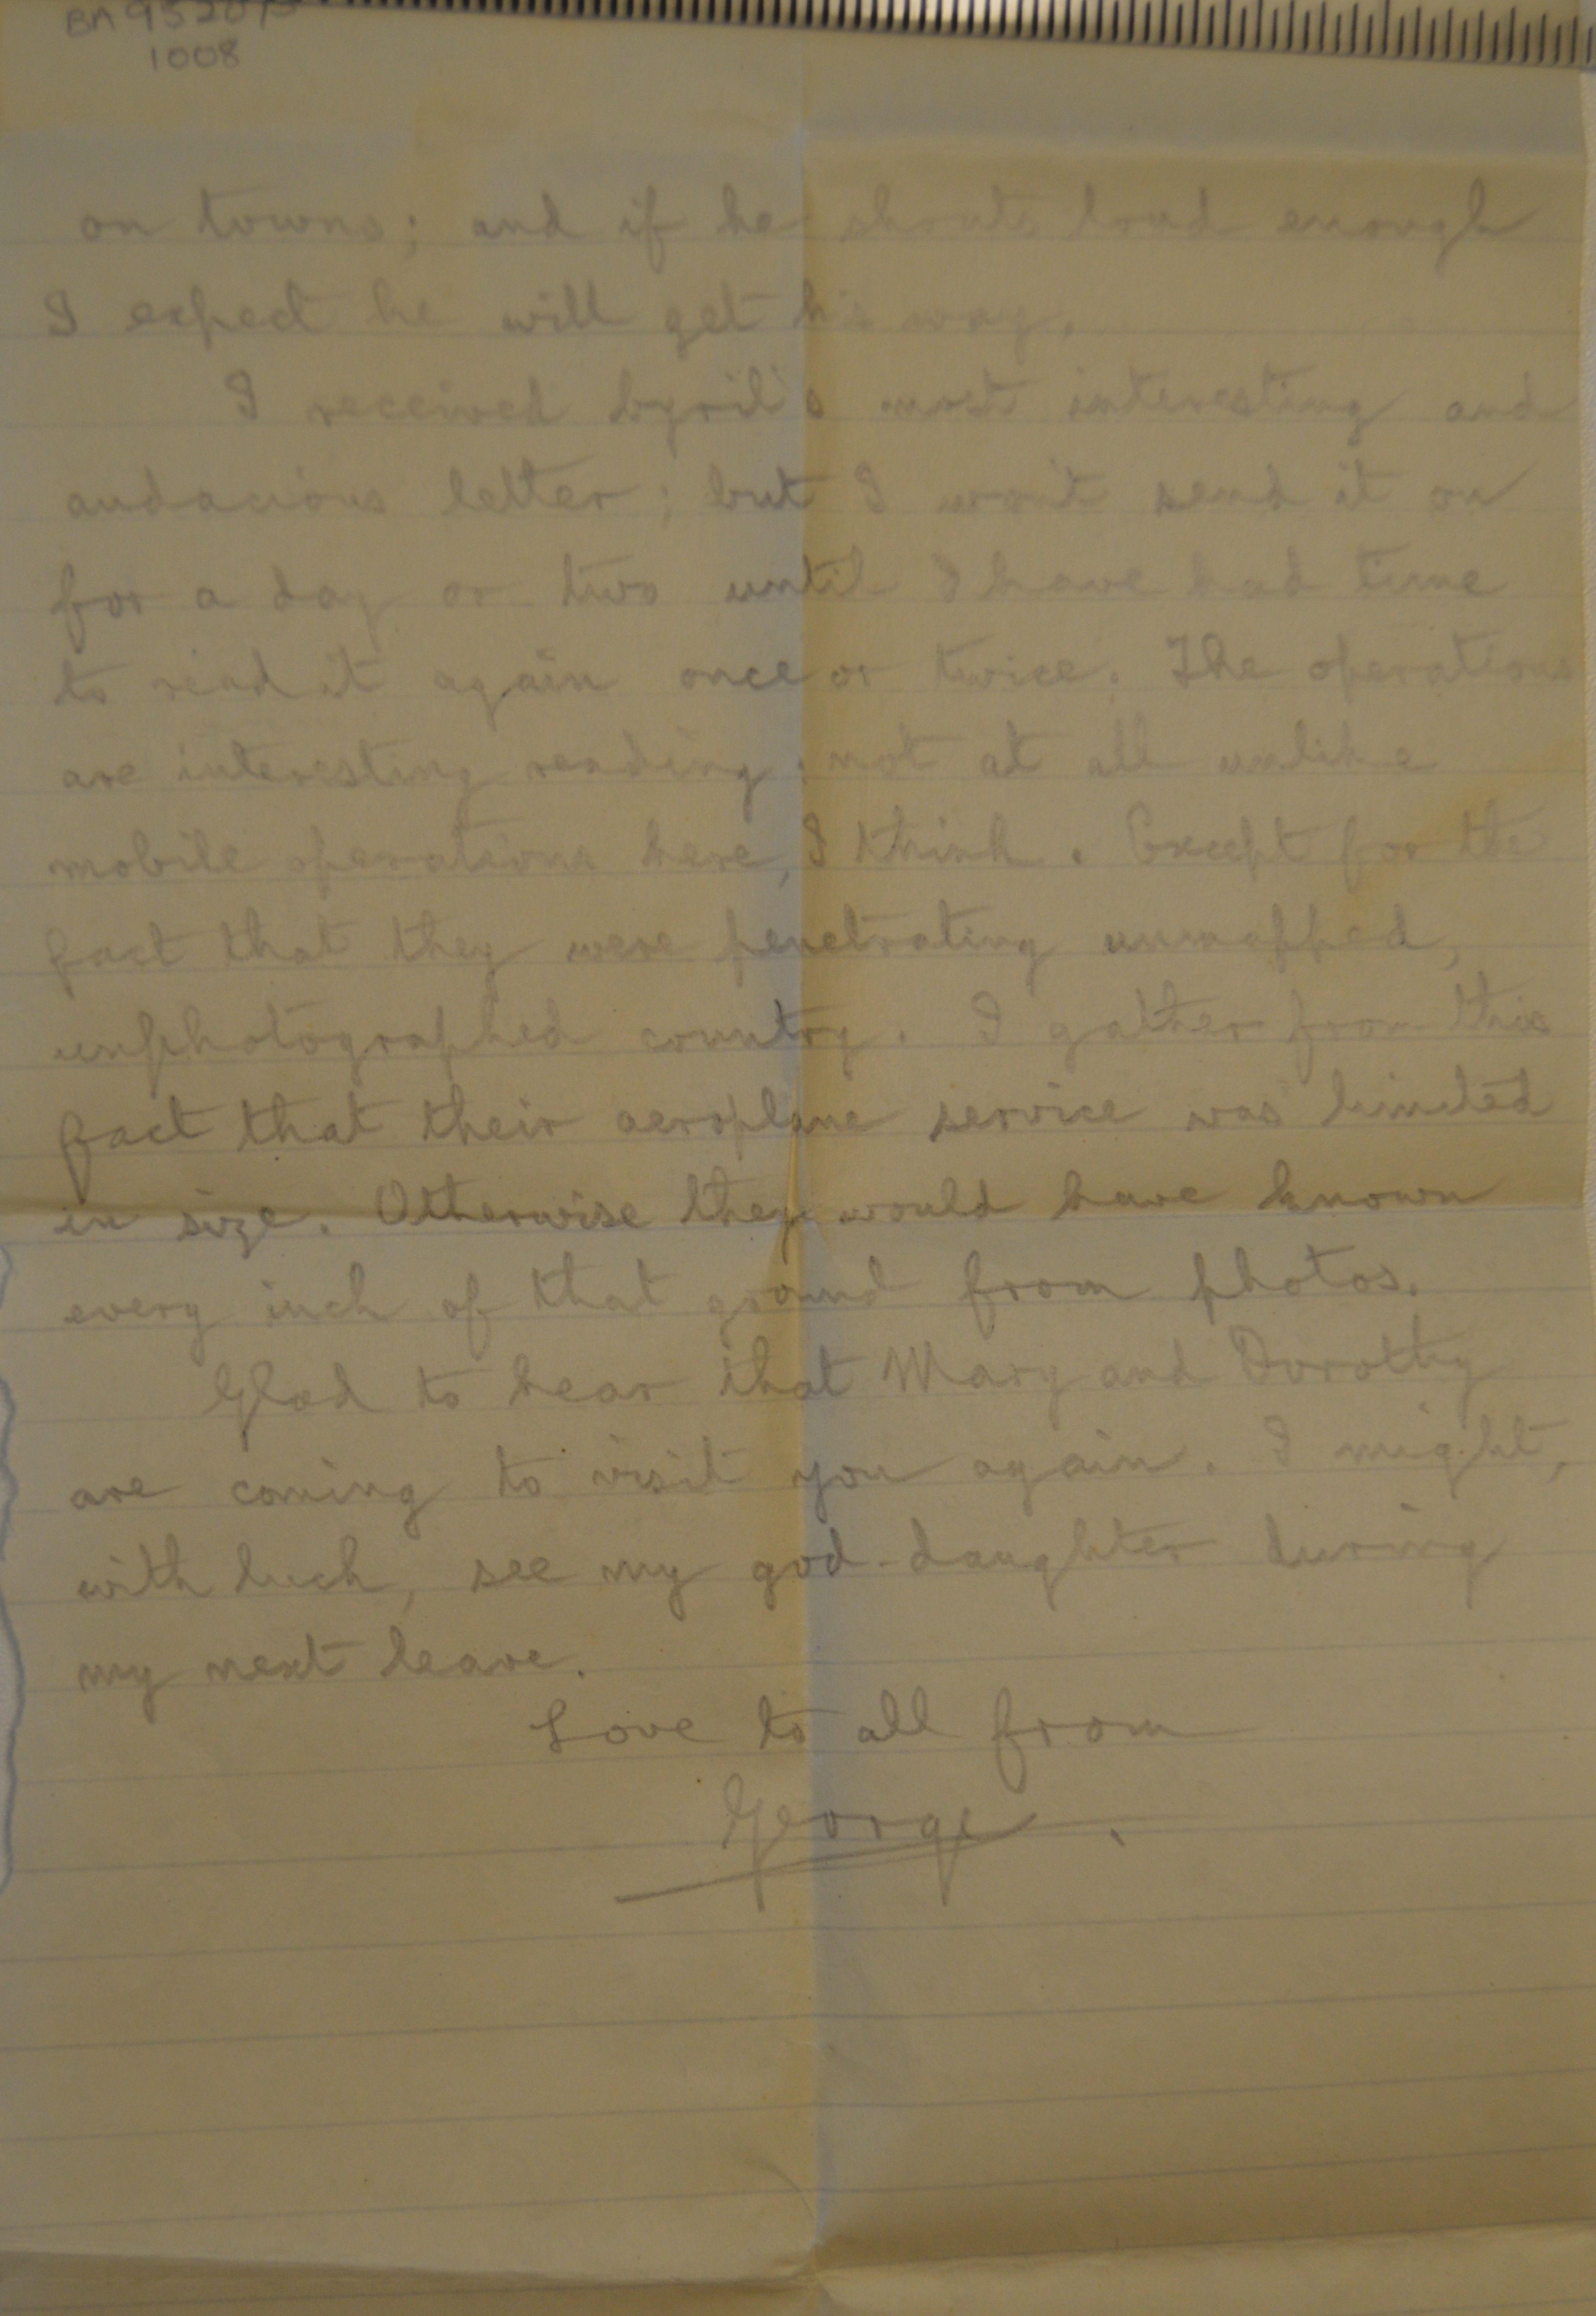 1008
on towns; and if he shouts loud enough
I expect he will get his way.
I received Cyril's most interesting and
audacious letter; but I won't send it on
for a day or two until I have had time
to read it again once or twice. The operations
are interesting reading; not at all unlike
mobile operations here, I think. Except for the
fact that they were penetrating unmapped,
unphotographed country. I gather from this
fact that their aeroplane service was limited
in size. Otherwise they would have known
every inch of that ground from photos.
Glad to hear that Mary and Dorothy
are coming to visit you again. I might,
with luck, see my god-daughter during
my next leave.
Love to all from
George.